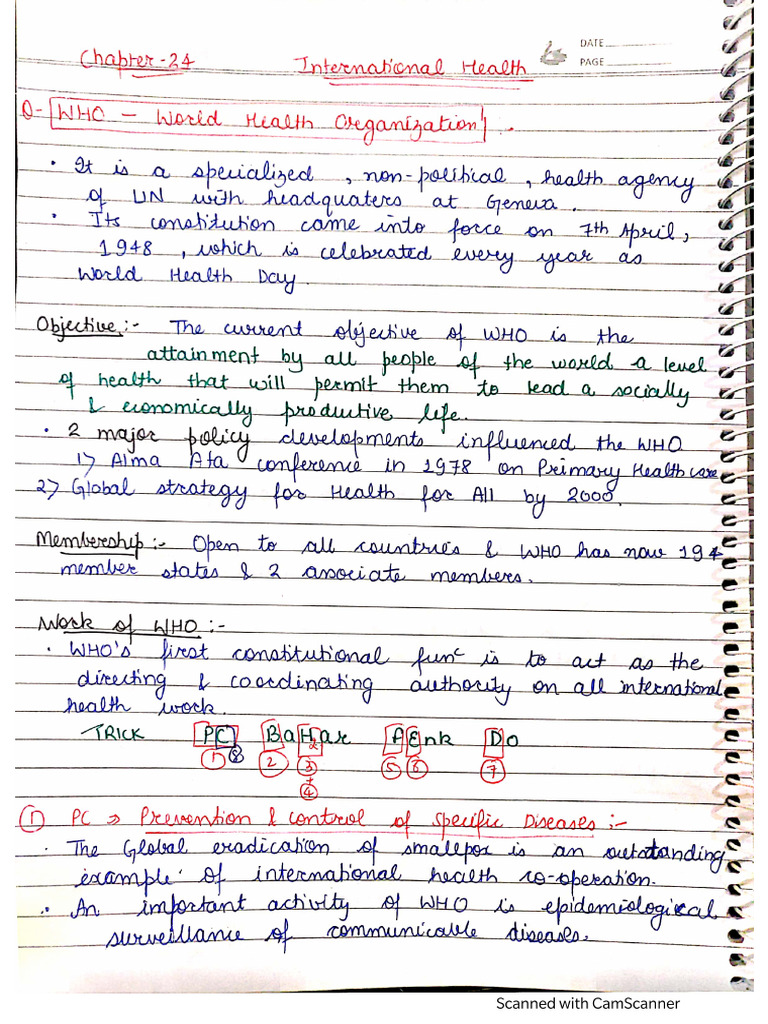 DATE
PAGE
Chapter-24 International Health
Q- WHO – World Health Organization.
• It is a specialized, non-political, health agency
of UN with headquaters at Geneva.
• Its constitution came into force on 7th April,
1948, which is celebrated every year as
World Health Day.
Objective:- The current objective of WHO is the
attainment by all people of the world a level
of health that will permit them to lead a socially
& economically productive life.
• 2 major policy developments influenced the WHO
1) Alma Ata conference in 1978 on Primary Health care
2) Global strategy for Health for All by 2000.
Membership:- Open to all countries & WHO has now 194
member states & 2 associate members.
Work of WHO:-
• WHO's first constitutional funᶜ is to act as the
directing & coordinating authority on all international
health work.
TRICK PC BaHar AEnk Do
2
① ⑧ ② ③ ⑤ ⑥ ⑦
+
④
① PC ⇒ Prevention & control of specific Diseases:-
• The Global eradication of smallpox is an outstanding
example of international health co-operation.
• An important activity of WHO is epidemiological
surveillance of communicable diseases.
Scanned with CamScanner